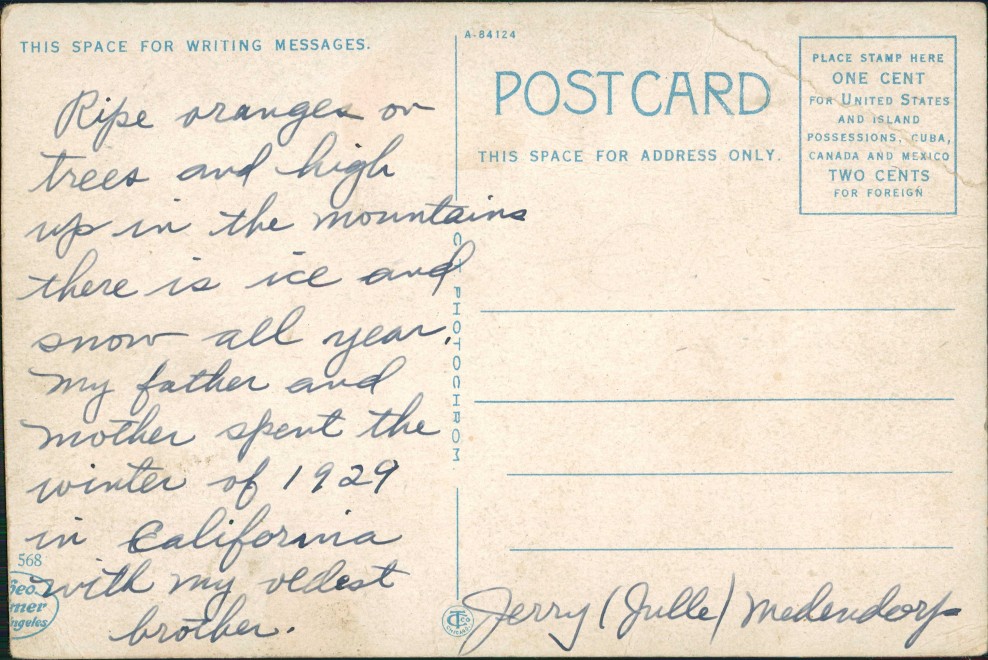 THIS SPACE FOR WRITING MESSAGES.
Ripe oranges on
trees and high
up in the mountains
there is ice and
snow all year.
My father and
mother spent the
winter of 1929
in California
with my oldest
brother.
568
Geo.
mer
ngeles
C.T. PHOTOCHROM
A-84124
POST CARD
THIS SPACE FOR ADDRESS ONLY.
PLACE STAMP HERE
ONE CENT
FOR UNITED STATES
AND ISLAND
POSSESSIONS, CUBA,
CANADA AND MEXICO
TWO CENTS
FOR FOREIGN
CHICAGO
Jerry (Julle) Medendorp